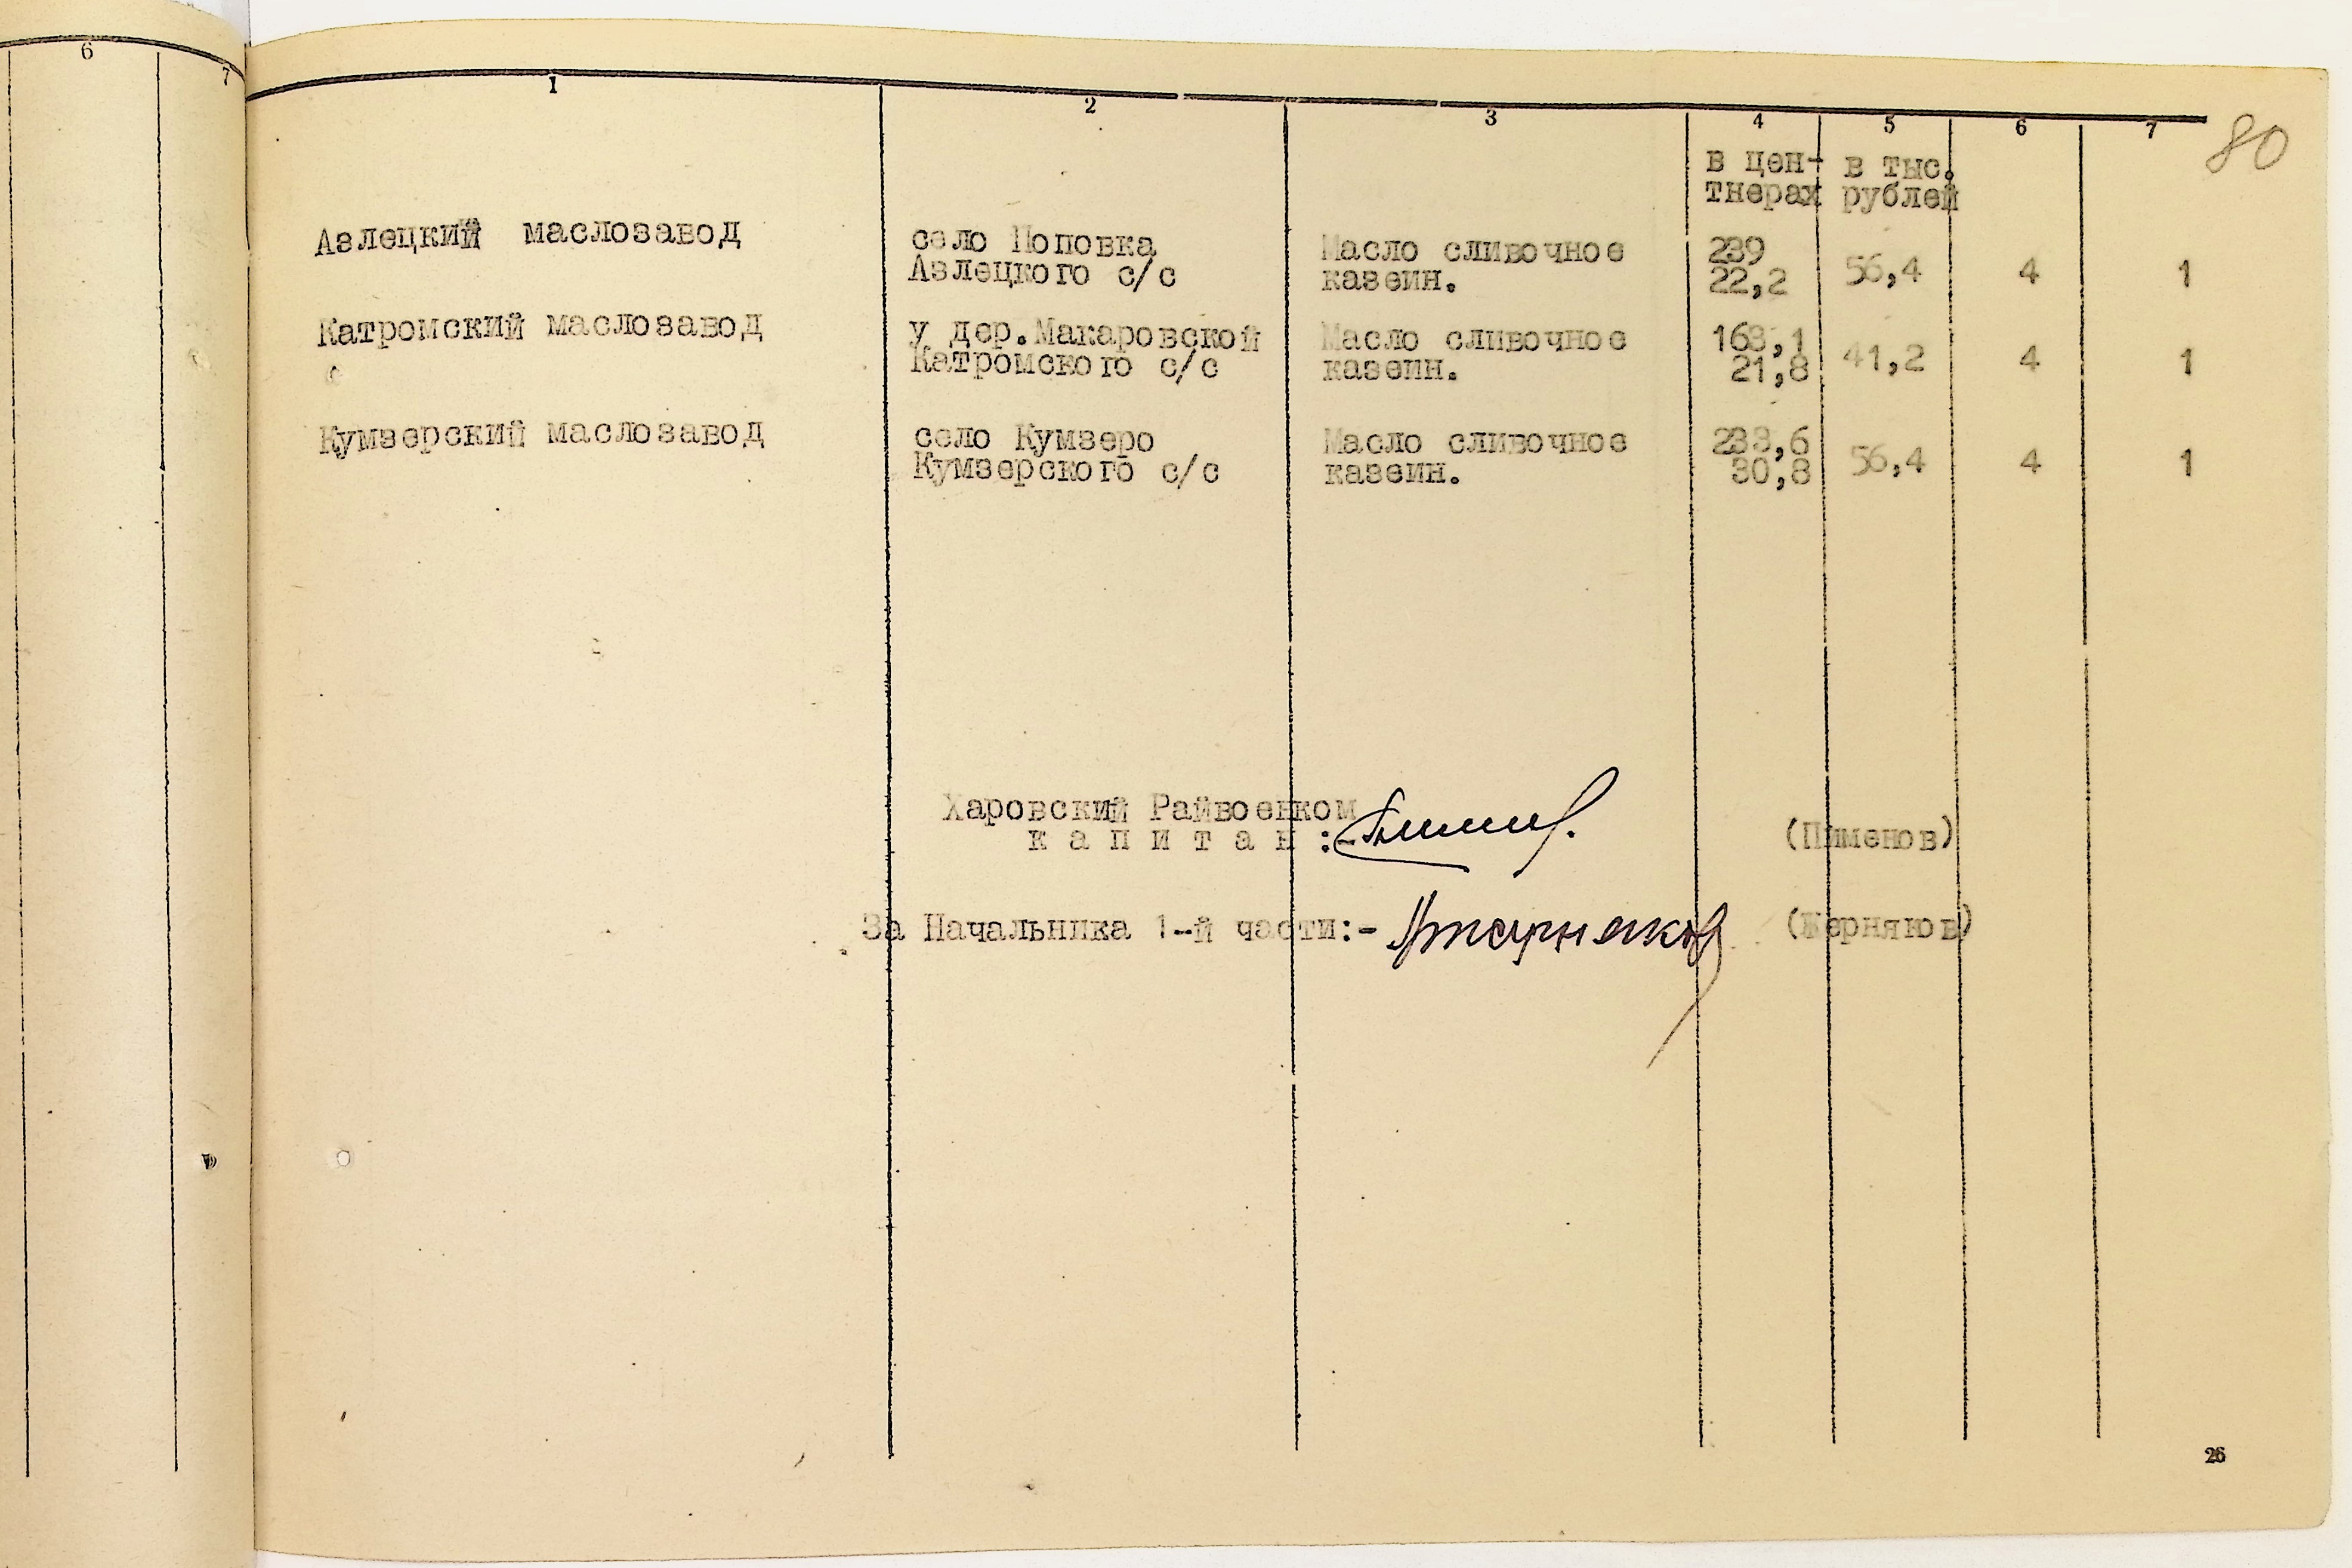 6 7
1 2 3 4 5 6 7
80
в цен- в тыс.
тнерах рублей
Азлецкий маслозавод село Поповка Масло сливочное 239
Азлецкого с/с казеин. 22,2 56,4 4 1
Катромский маслозавод у дер.Макаровской Масло сливочное 163,1
Катромского с/с казеин. 21,8 41,2 4 1
Кумзерский маслозавод село Кумзеро Масло сливочное 233,6
Кумзерского с/с казеин. 30,8 56,4 4 1
Харовский Райвоенком
к а п и т а н :- (Пименов)
За Начальника 1-й части:- (Жерняков)
26